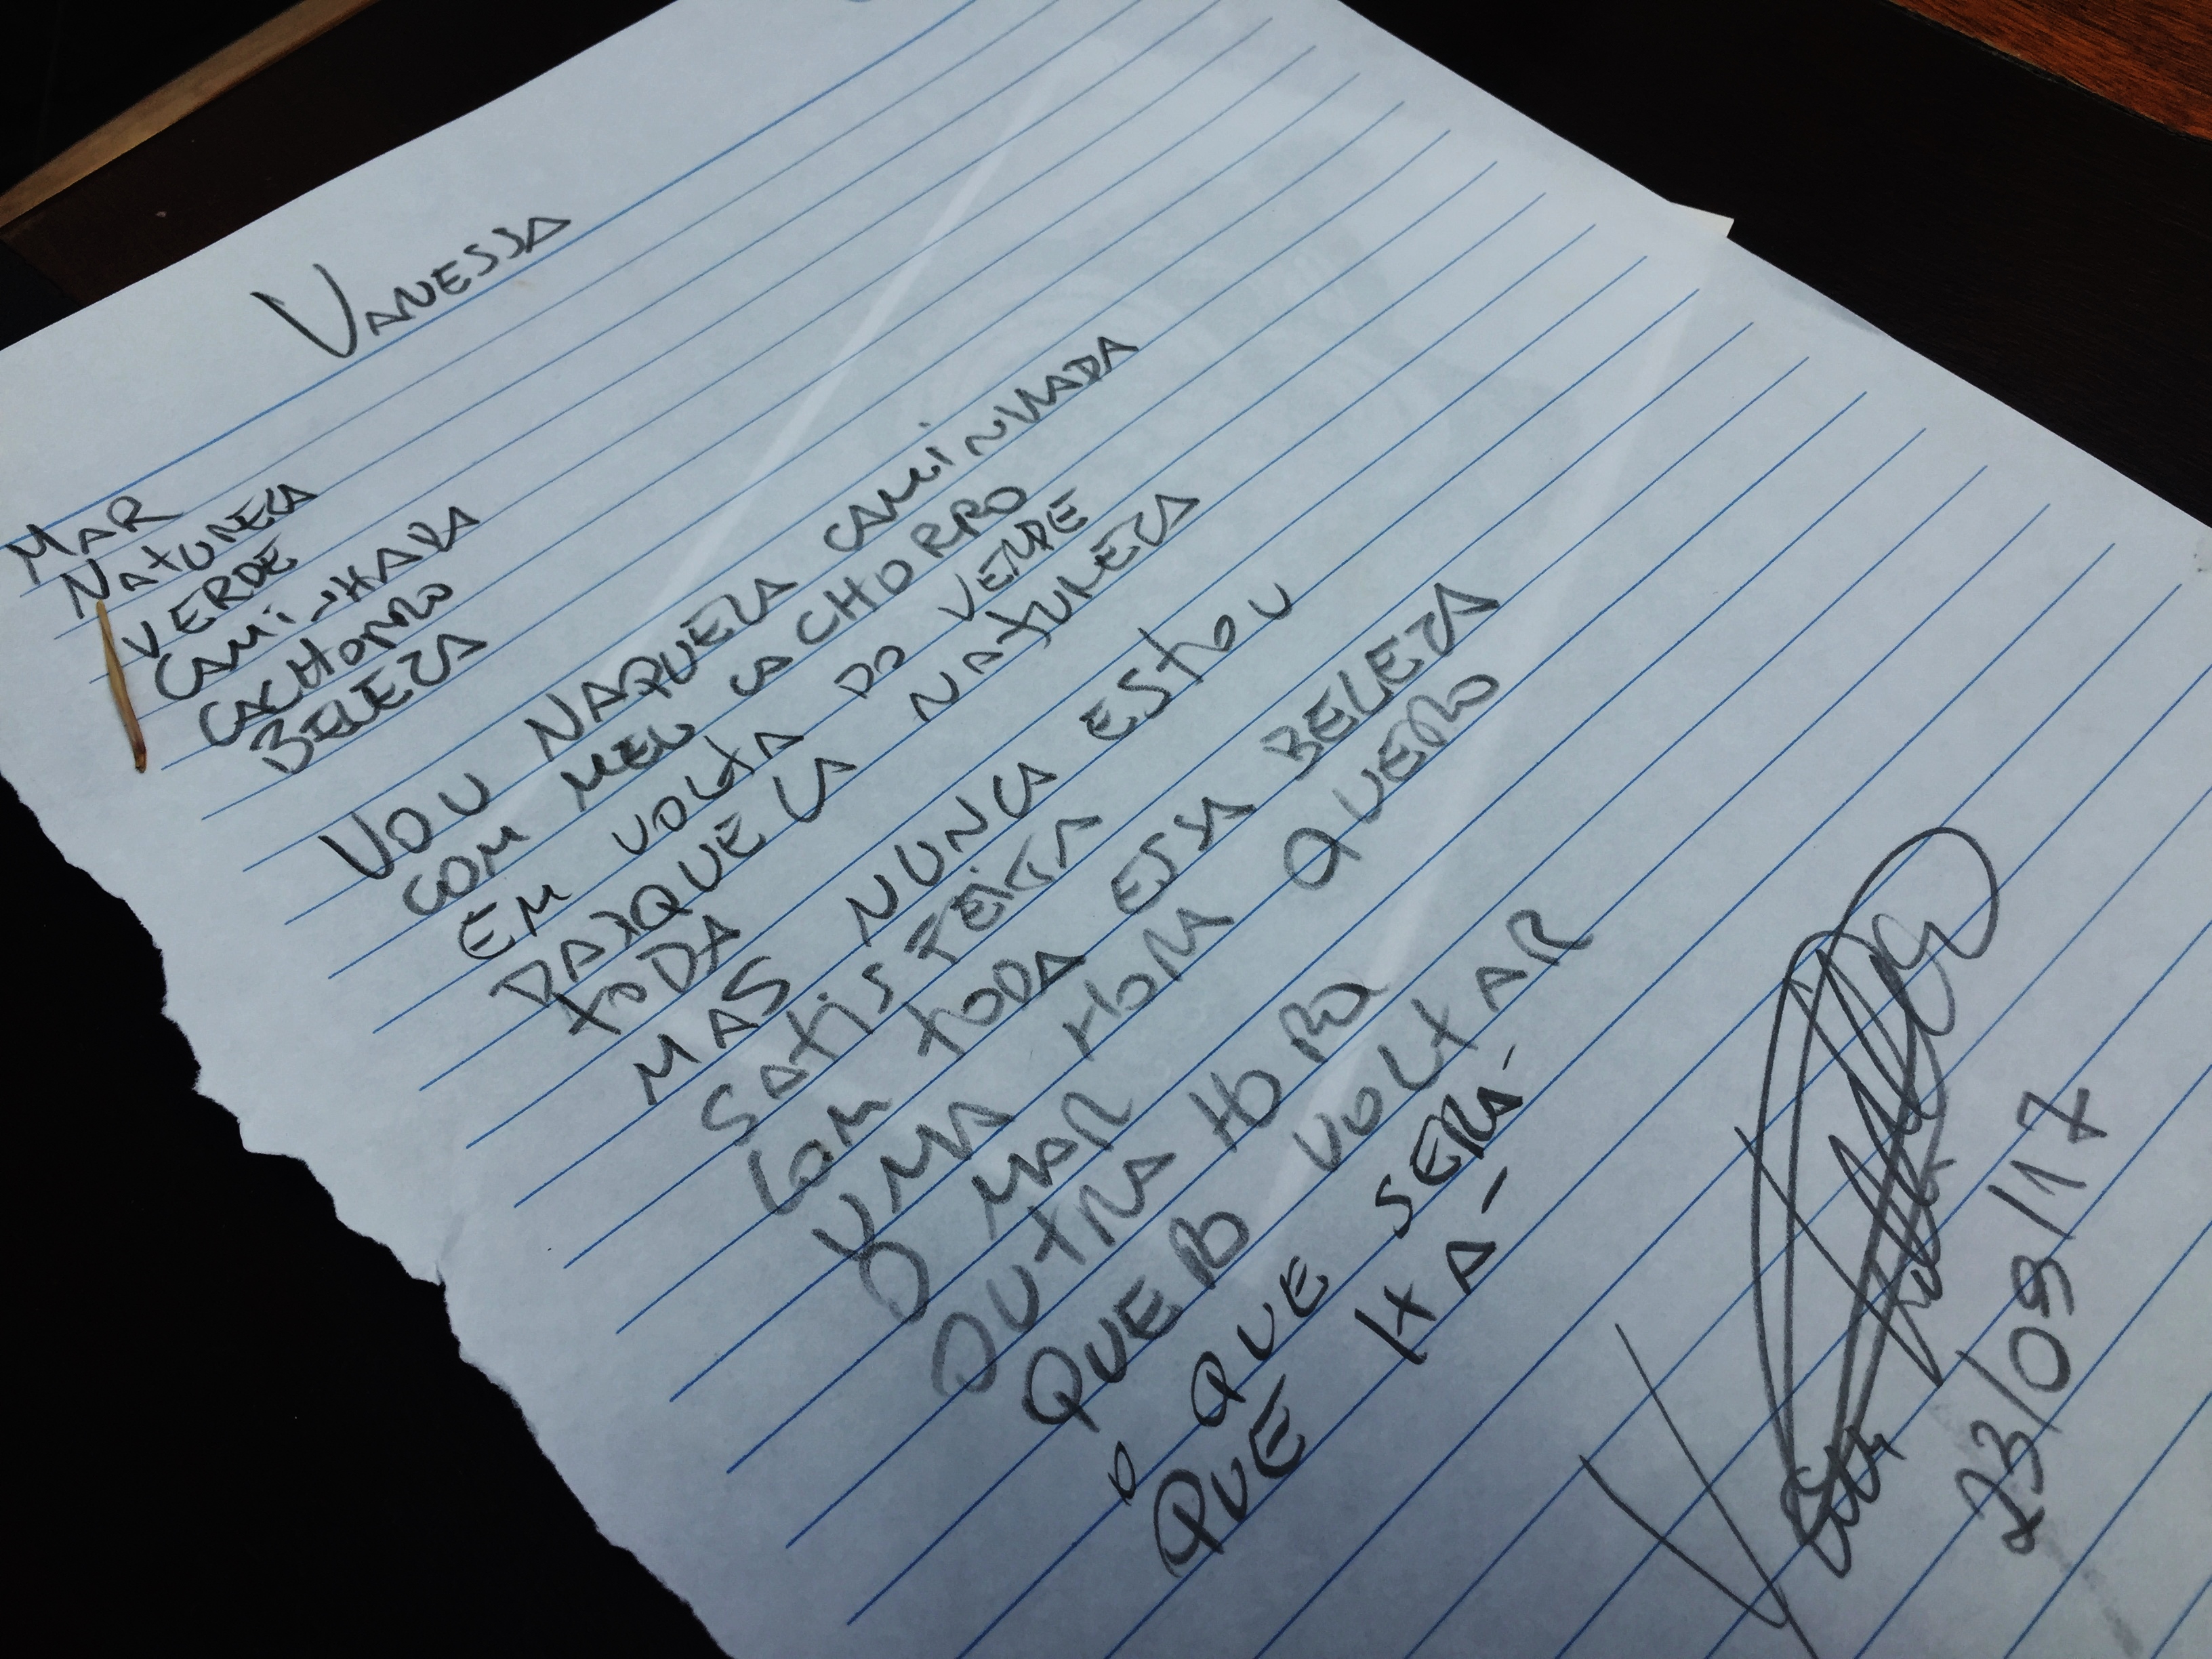 VANESSA
MAR
NATUREZA
VERDE
CAMINHADA
CACHORRO
BELEZA
VOU NAQUELA CAMINHADA
COM MEU CACHORRO
EM VOLTA DO VERDE
DAQUELA NATUREZA
TODA
MAS NUNCA ESTOU
SATISFEITA
COM TODA ESSA BELEZA
UMA HORA QUERO
O MAR
OUTRA HORA
QUERO VOLTAR
O QUE SERÁ
QUE HÁ -
23/09/17